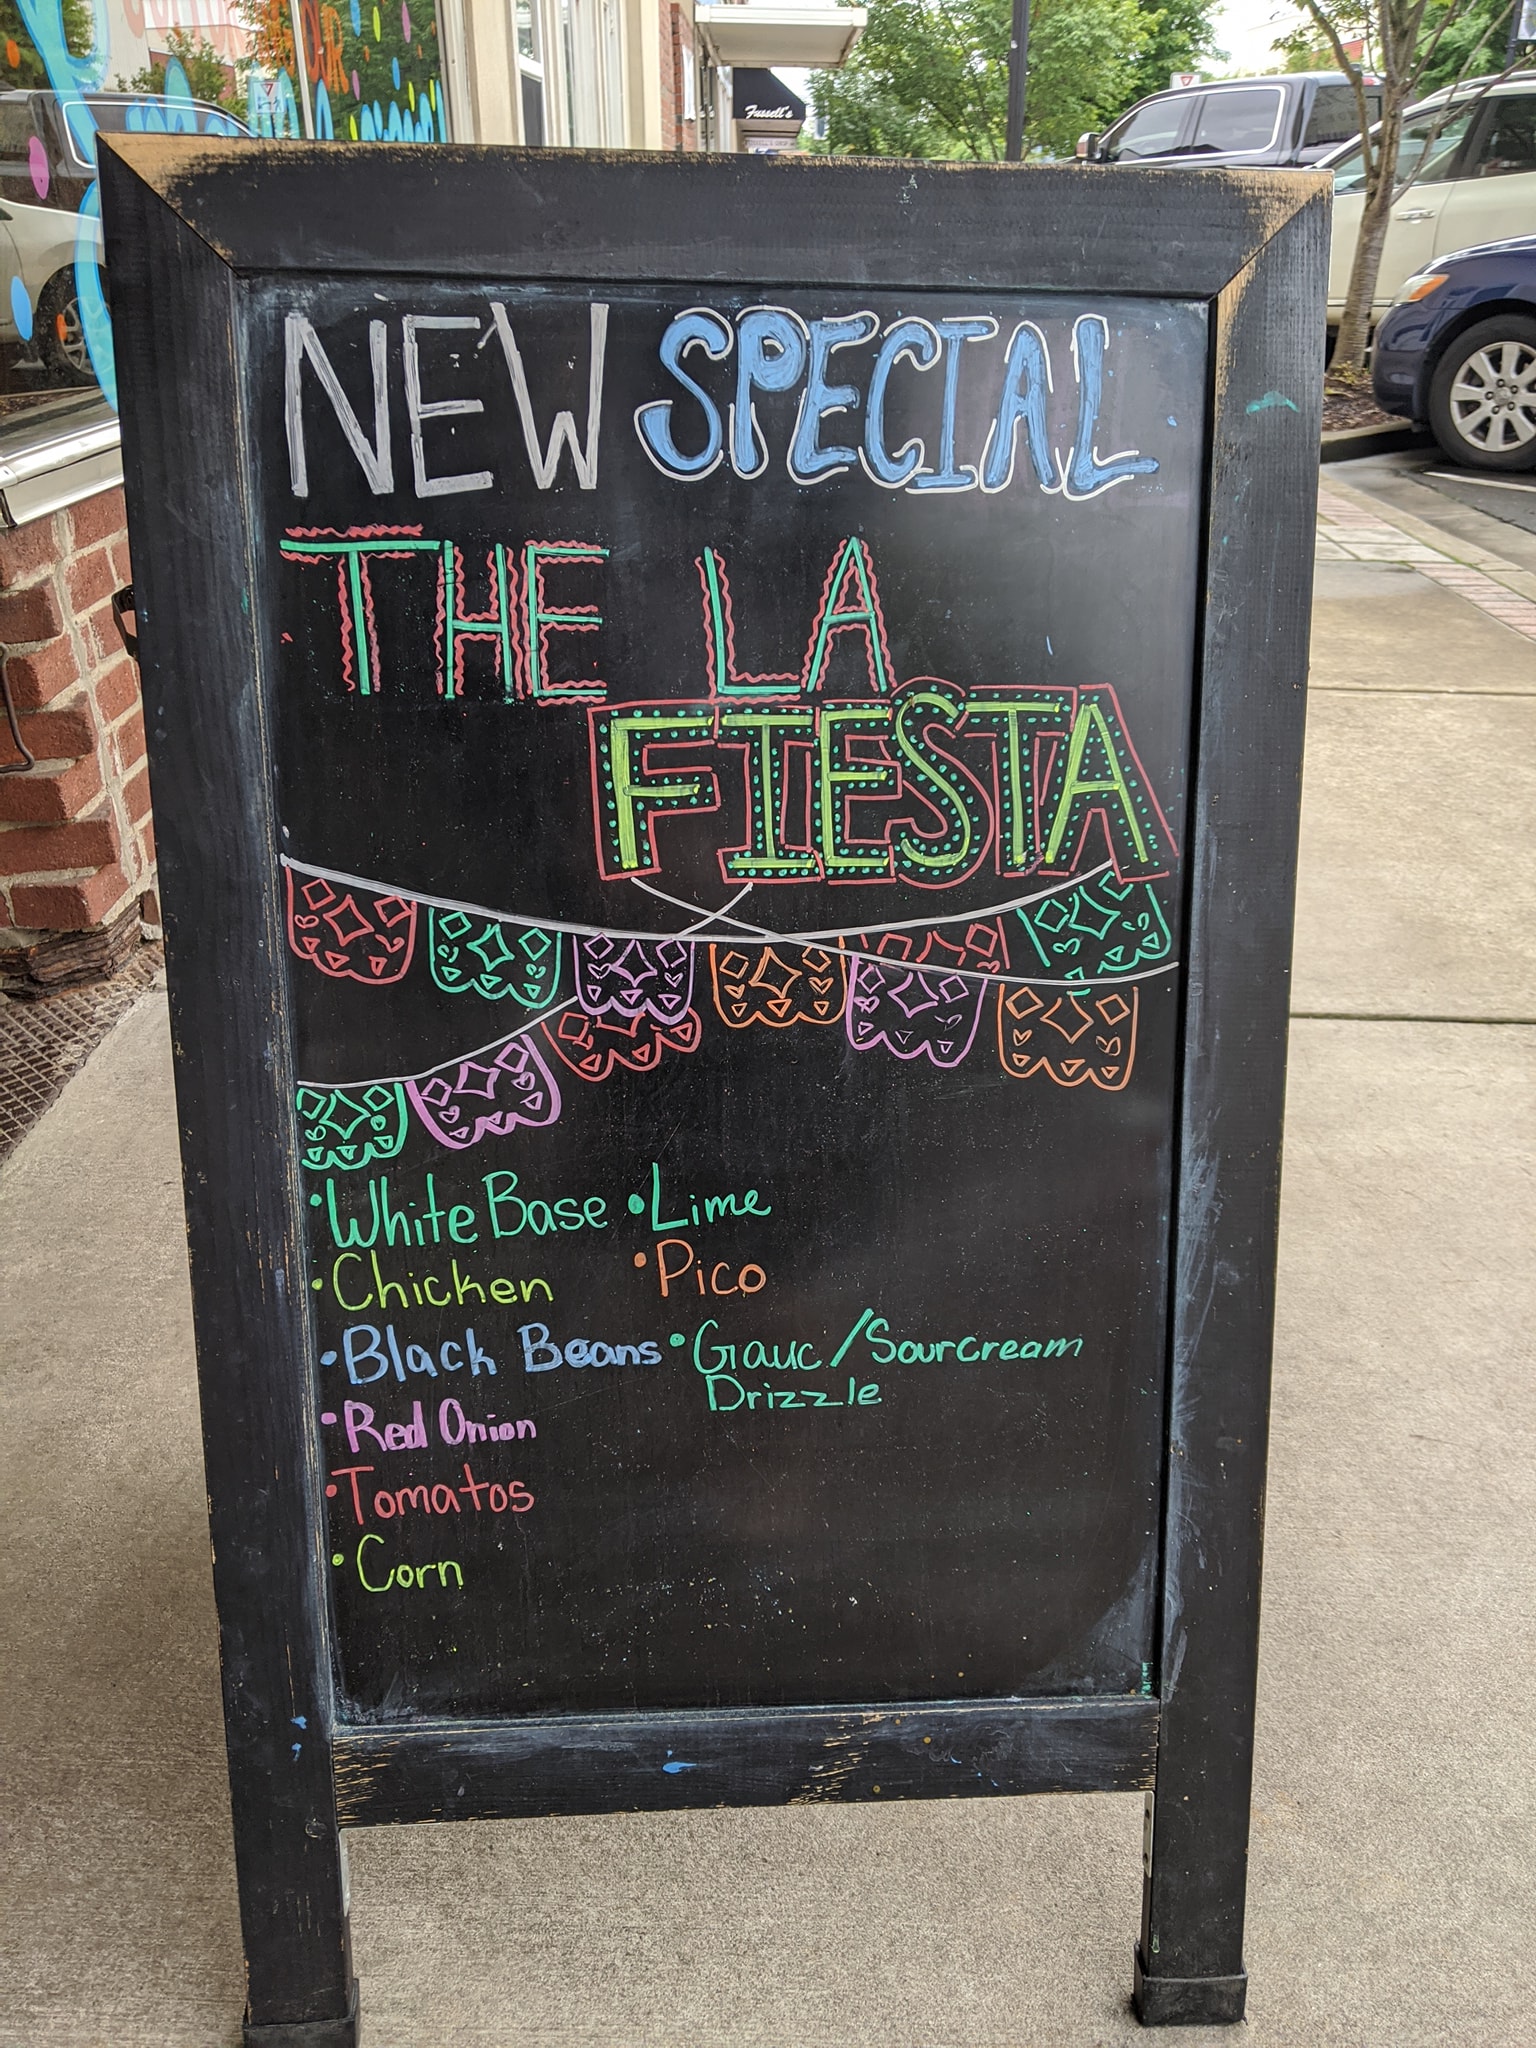 Fussell's
NEW SPECIAL
THE LA
FIESTA
• White Base
• Chicken
• Black Beans
• Red Onion
• Tomatos
• Corn
• Lime
• Pico
• Gauc/Sourcream
Drizzle